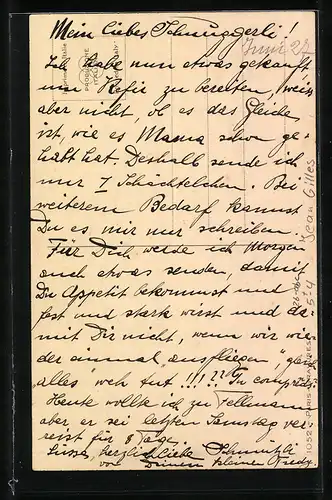 Mein liebes Schnuggerli!
Juni 27
Ich habe nun etwas gekauft,
um Kefir zu bereiten, weiss
aber nicht, ob es das Gleiche
ist, wie es Mama schon ge-
habt hat. Deshalb sende ich
nur 1 Schächtelchen. Bei
weiterem Bedarf kannst
Du es mir nur schreiben.
Für Dich werde ich Morgen
auch etwas senden, damit
Du Appetit bekommst und
fest und stark wirst und da-
mit Dir nicht, wenn wir wie-
der einmal "ausfliegen", "gleich
alles" weh tut!!!??
Heute wollte ich zu Zellmann
aber er sei letzten Samstag ver-
reist für 8 Tage.
Jean Gilles